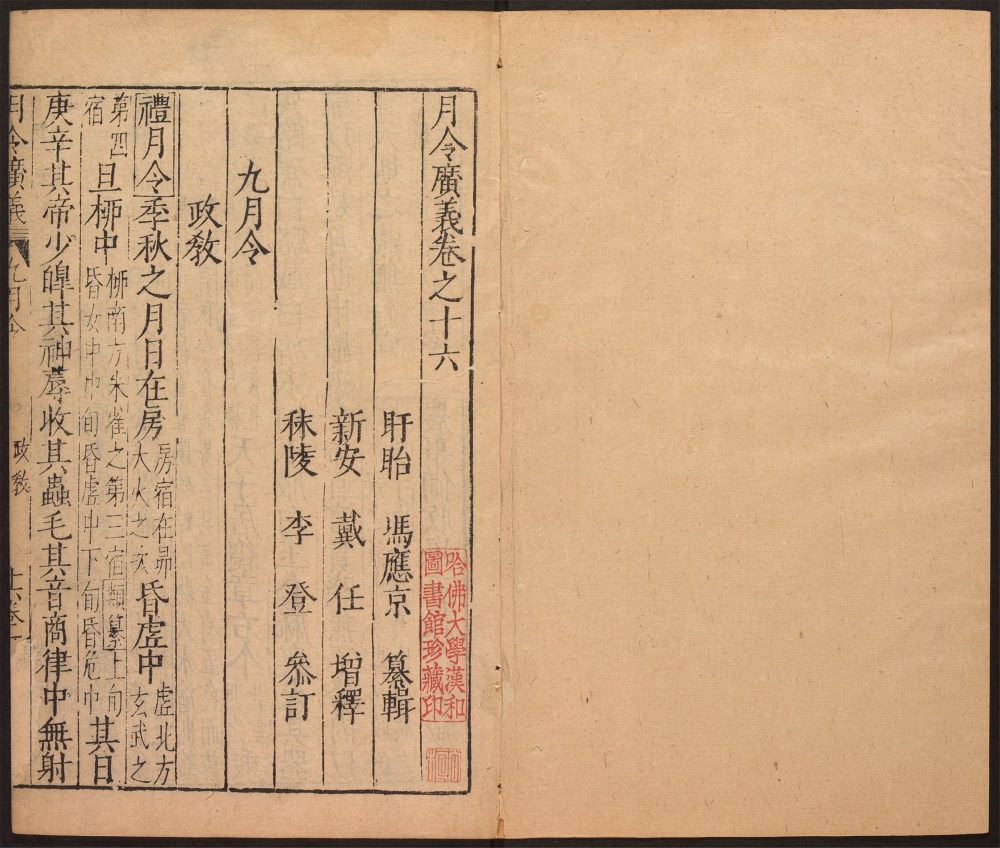 月令廣義卷之十六
盱眙 馮應京 纂輯
新安 戴任 增釋
秣陵 李登 叅訂
九月令
政敎
禮月令季秋之月日在房房宿在昴大火之次昏虛中虛北方玄武之
第四宿旦桺中桺南方朱雀之第三宿類纂上旬昏女中中旬昏虛中下旬昏危中其日
庚辛其帝少皥其神蓐收其蟲毛其音商律中無射
月令廣義 九月令 政敎
哈佛大學漢和
圖書館珍藏印